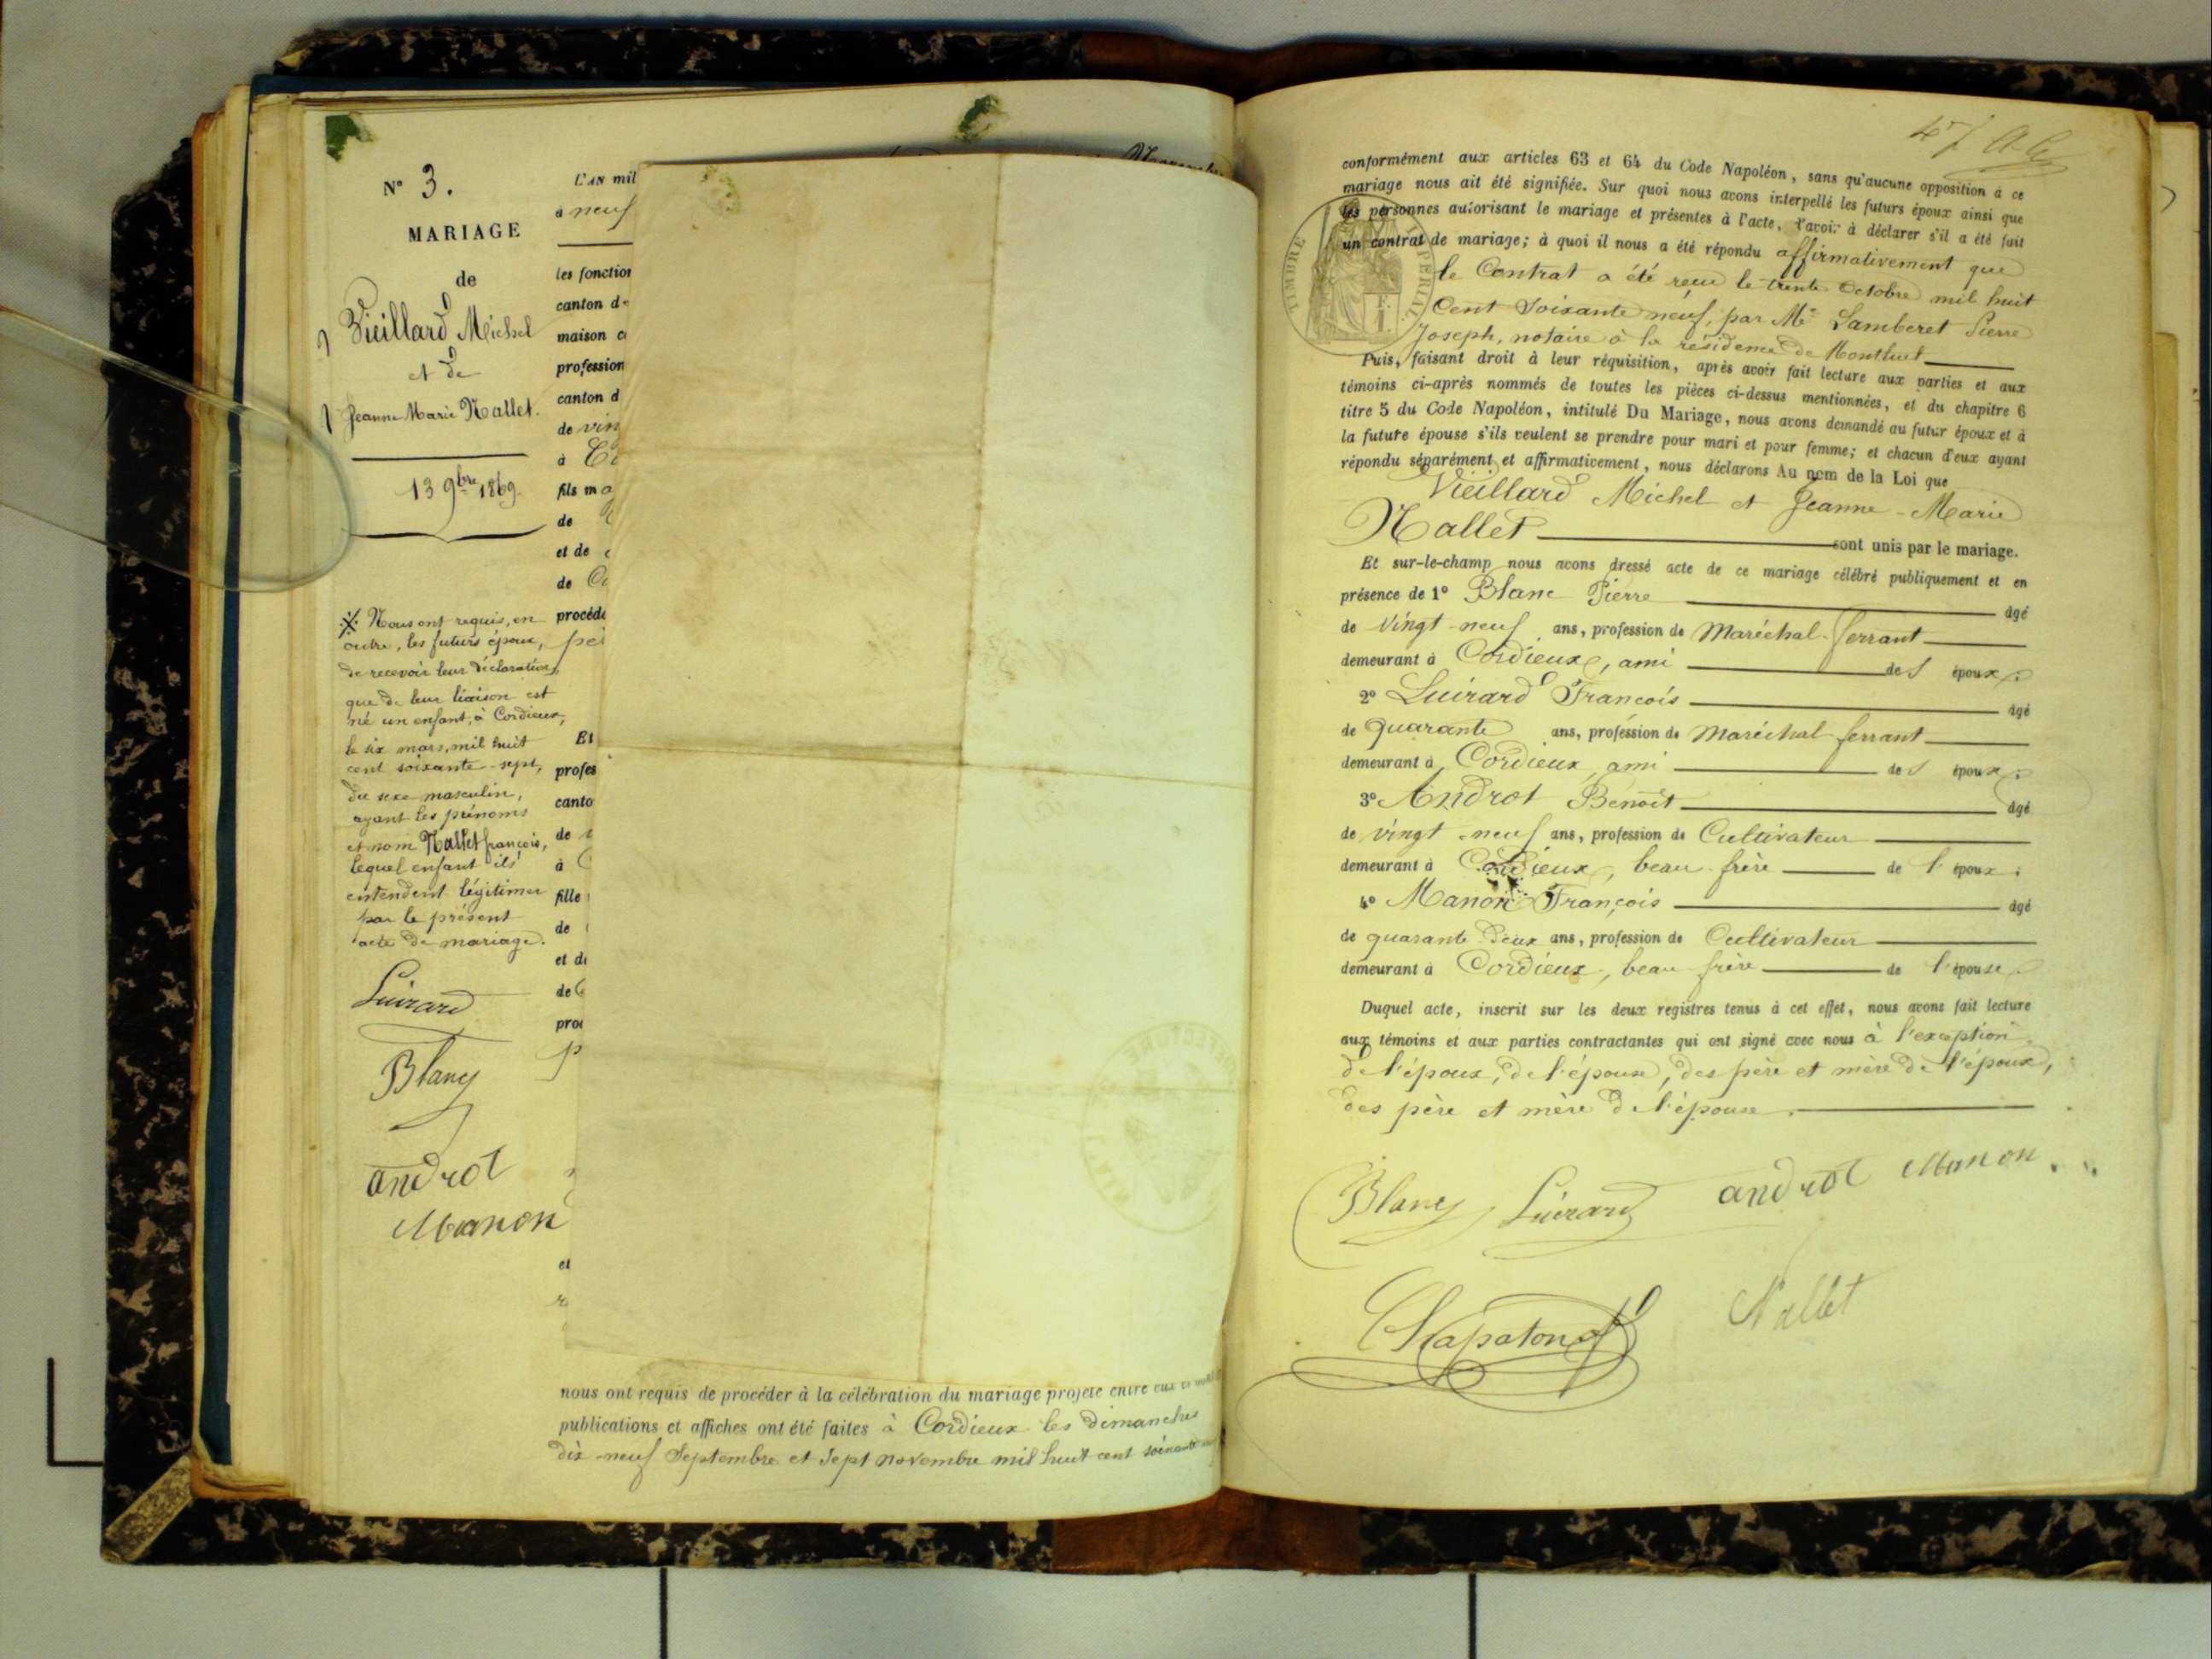 N° 3.
MARIAGE
de
Vieillard Michel
et de
Jeanne Marie Nallet.
13 9bre 1869.
※ Nous ont requis, en
outre, les futurs époux,
de recevoir leur déclaration,
que de leur liaison est
né un enfant, à Cordieux,
le six mars, mil huit
cent soixante-sept,
du sexe masculin,
ayant les prénoms
et nom Nallet françois,
lequel enfant ils
entendent légitimer
par le présent
acte de mariage.
Luirard
Blanc
androt
Manon
L'AN mil
à neuf
les fonction
canton de
maison c
profession
canton d
de vin
à
fils ma
de
et de
de
procéde
Et
profes
canto
de
à
fille
de
et de
de
pro
et
nous ont requis de procéder à la célébration du mariage projeté entre eux
publications et affiches ont été faites à Cordieux les dimanches
dix-neuf Septembre et Sept novembre mil huit cent soixante
47
conformément aux articles 63 et 64 du Code Napoléon, sans qu'aucune opposition à ce
mariage nous ait été signifiée. Sur quoi nous avons interpellé les futurs époux ainsi que
les personnes autorisant le mariage et présentes à l'acte, d'avoir à déclarer s'il a été fait
un contrat de mariage; à quoi il nous a été répondu affirmativement que
TIMBRE IMPERIAL
le Contrat a été reçu le trente Octobre mil huit
Cent Soixante neuf, par Me Lamberet Pierre
Joseph, notaire à la résidence de Montluel
Puis, faisant droit à leur réquisition, après avoir fait lecture aux parties et aux
témoins ci-après nommés de toutes les pièces ci-dessus mentionnées, et du chapitre 6
titre 5 du Code Napoléon, intitulé Du Mariage, nous avons demandé au futur époux et à
la future épouse s'ils veulent se prendre pour mari et pour femme; et chacun d'eux ayant
répondu séparément et affirmativement, nous déclarons Au nom de la Loi que
Vieillard Michel et Jeanne-Marie
Nallet sont unis par le mariage.
Et sur-le-champ nous avons dressé acte de ce mariage célébré publiquement et en
présence de 1° Blanc Pierre âgé
de vingt-neuf ans, profession de Maréchal-ferrant
demeurant à Cordieux, ami des époux.
2° Luirard François âgé
de quarante ans, profession de Maréchal ferrant
demeurant à Cordieux, ami des époux.
3° Androt Benoît âgé
de vingt-neuf ans, profession de Cultivateur
demeurant à Cordieux, beau-frère de l'époux.
4° Manon François âgé
de quarante deux ans, profession de Cultivateur
demeurant à Cordieux, beau frère de l'épouse
Duquel acte, inscrit sur les deux registres tenus à cet effet, nous avons fait lecture
aux témoins et aux parties contractantes qui ont signé avec nous à l'exception
de l'époux, de l'épouse, des père et mère de l'époux,
des père et mère de l'épouse.
Blanc Luirard androt Manon
Chapaton Nallet